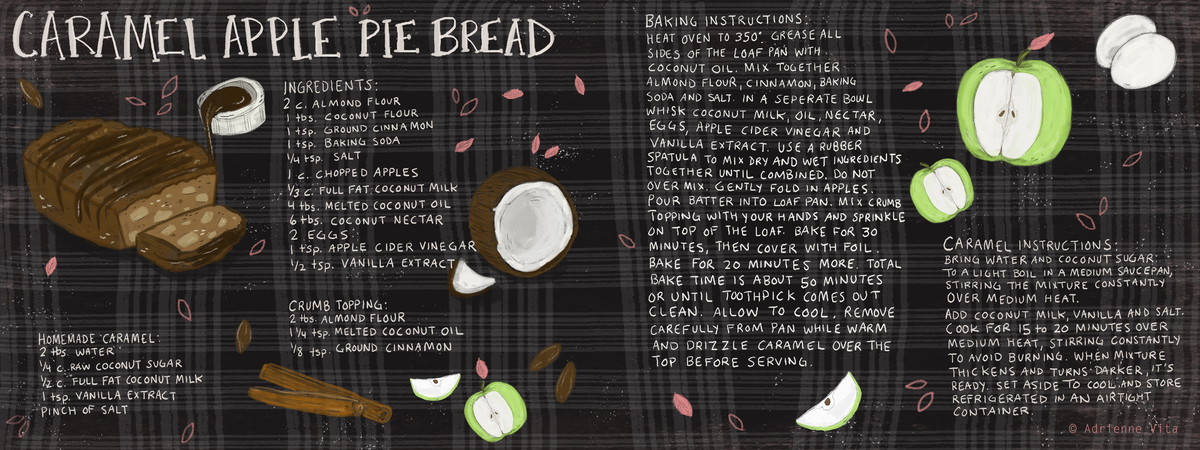 CARAMEL APPLE PIE BREAD
INGREDIENTS:
2 C. ALMOND FLOUR
1 tbs. COCONUT FLOUR
1 tsp. GROUND CINNAMON
1 tsp. BAKING SODA
1/4 tsp. SALT
1 C. CHOPPED APPLES
1/3 C. FULL FAT COCONUT MILK
4 tbs. MELTED COCONUT OIL
6 tbs. COCONUT NECTAR
2 EGGS
1 tsp. APPLE CIDER VINEGAR
1/2 tsp. VANILLA EXTRACT
CRUMB TOPPING:
2 tbs. ALMOND FLOUR
1 1/4 tsp. MELTED COCONUT OIL
1/8 tsp. GROUND CINNAMON
HOMEMADE CARAMEL:
2 tbs. WATER
1/4 C. RAW COCONUT SUGAR
1/2 C. FULL FAT COCONUT MILK
1 tsp. VANILLA EXTRACT
PINCH OF SALT
BAKING INSTRUCTIONS:
HEAT OVEN TO 350°. GREASE ALL
SIDES OF THE LOAF PAN WITH
COCONUT OIL. MIX TOGETHER
ALMOND FLOUR, CINNAMON, BAKING
SODA AND SALT. IN A SEPERATE BOWL
WHISK COCONUT MILK, OIL, NECTAR,
EGGS, APPLE CIDER VINEGAR AND
VANILLA EXTRACT. USE A RUBBER
SPATULA TO MIX DRY AND WET INGREDIENTS
TOGETHER UNTIL COMBINED. DO NOT
OVER MIX. GENTLY FOLD IN APPLES.
POUR BATTER INTO LOAF PAN. MIX CRUMB
TOPPING WITH YOUR HANDS AND SPRINKLE
ON TOP OF THE LOAF. BAKE FOR 30
MINUTES, THEN COVER WITH FOIL.
BAKE FOR 20 MINUTES MORE. TOTAL
BAKE TIME IS ABOUT 50 MINUTES
OR UNTIL TOOTHPICK COMES OUT
CLEAN. ALLOW TO COOL, REMOVE
CAREFULLY FROM PAN WHILE WARM
AND DRIZZLE CARAMEL OVER THE
TOP BEFORE SERVING.
CARAMEL INSTRUCTIONS:
BRING WATER AND COCONUT SUGAR
TO A LIGHT BOIL IN A MEDIUM SAUCEPAN,
STIRRING THE MIXTURE CONSTANTLY
OVER MEDIUM HEAT.
ADD COCONUT MILK, VANILLA AND SALT.
COOK FOR 15 to 20 MINUTES OVER
MEDIUM HEAT, STIRRING CONSTANTLY
TO AVOID BURNING. WHEN MIXTURE
THICKENS AND TURNS DARKER, IT'S
READY. SET ASIDE TO COOL AND STORE
REFRIGERATED IN AN AIRTIGHT
CONTAINER.
© Adrienne Vita